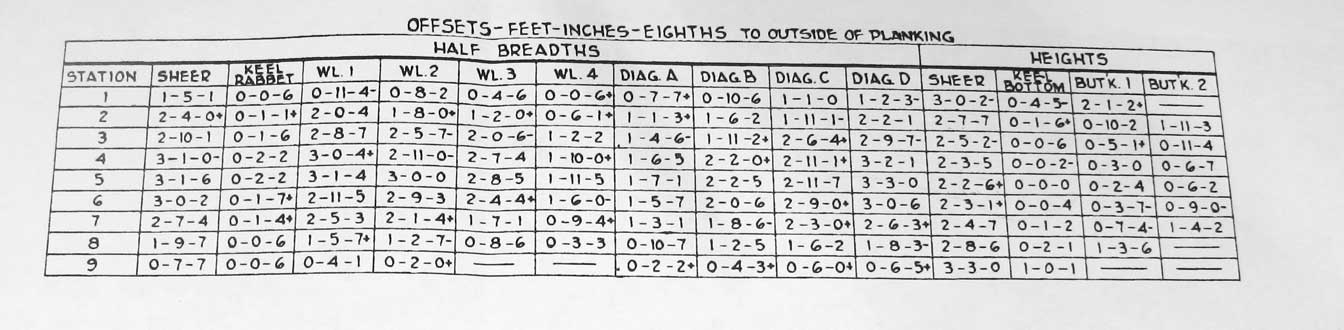 OFFSETS-FEET-INCHES-EIGHTHS TO OUTSIDE OF PLANKING
HALF BREADTHS HEIGHTS
STATION SHEER KEEL RABBET WL.1 WL.2 WL.3 WL.4 DIAG.A DIAG.B DIAG.C DIAG.D SHEER KEEL BOTTOM BUT'K.1 BUT'K.2
1 1-5-1 0-0-6 0-11-4- 0-8-2 0-4-6 0-0-6+ 0-7-7+ 0-10-6 1-1-0 1-2-3- 3-0-2- 0-4-5- 2-1-2+ —
2 2-4-0+ 0-1-1+ 2-0-4 1-8-0+ 1-2-0+ 0-6-1+ 1-1-3+ 1-6-2 1-11-1- 2-2-1 2-7-7 0-1-6+ 0-10-2 1-11-3
3 2-10-1 0-1-6 2-8-7 2-5-7- 2-0-6- 1-2-2 1-4-6- 1-11-2+ 2-6-4+ 2-9-7- 2-5-2- 0-0-6 0-5-1+ 0-11-4
4 3-1-0- 0-2-2 3-0-4+ 2-11-0- 2-7-4 1-10-0+ 1-6-5 2-2-0+ 2-11-1+ 3-2-1 2-3-5 0-0-2- 0-3-0 0-6-7
5 3-1-6 0-2-2 3-1-4 3-0-0 2-8-5 1-11-5 1-7-1 2-2-5 2-11-7 3-3-0 2-2-6+ 0-0-0 0-2-4 0-6-2
6 3-0-2 0-1-7+ 2-11-5 2-9-3 2-4-4+ 1-6-0- 1-5-7 2-0-6 2-9-0+ 3-0-6 2-3-1+ 0-0-4 0-3-7- 0-9-0-
7 2-7-4 0-1-4+ 2-5-3 2-1-4+ 1-7-1 0-9-4+ 1-3-1 1-8-6- 2-3-0+ 2-6-3+ 2-4-7 0-1-2 0-7-4- 1-4-2
8 1-9-7 0-0-6 1-5-7+ 1-2-7- 0-8-6 0-3-3 0-10-7 1-2-5 1-6-2 1-8-3- 2-8-6 0-2-1 1-3-6 —
9 0-7-7 0-0-6 0-4-1 0-2-0+ — — 0-2-2+ 0-4-3+ 0-6-0+ 0-6-5+ 3-3-0 1-0-1 — —